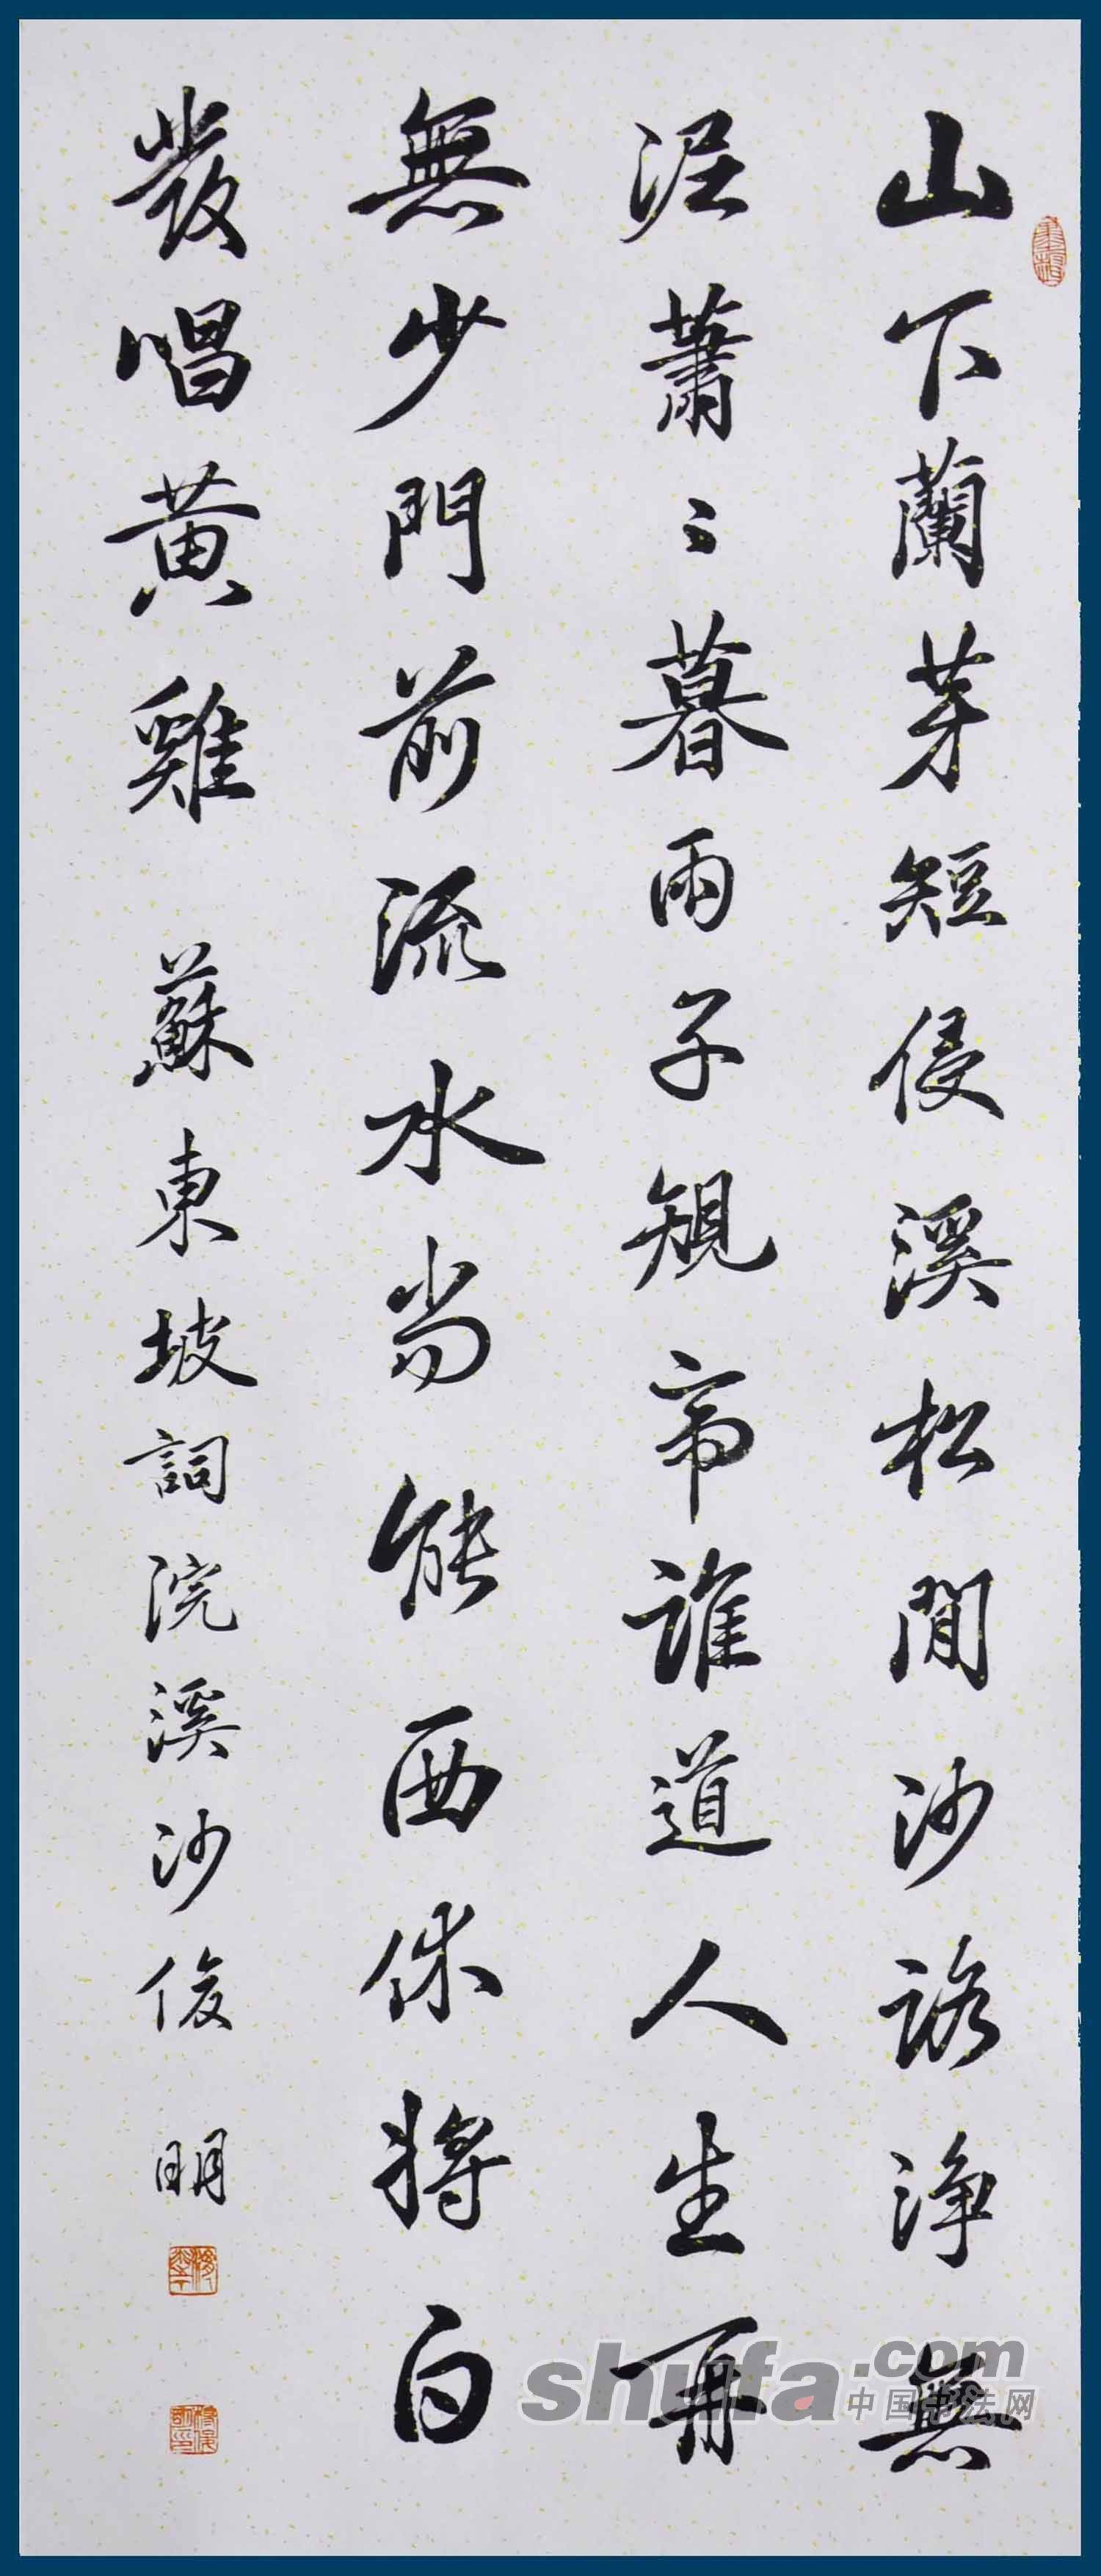 山下蘭芽短侵溪松間沙路淨無
泥蕭〻暮雨子規啼誰道人生再
無少門前流水尚能西休將白
髮唱黄雞 蘇東坡詞浣溪沙俊明
shufa.com
中国书法网